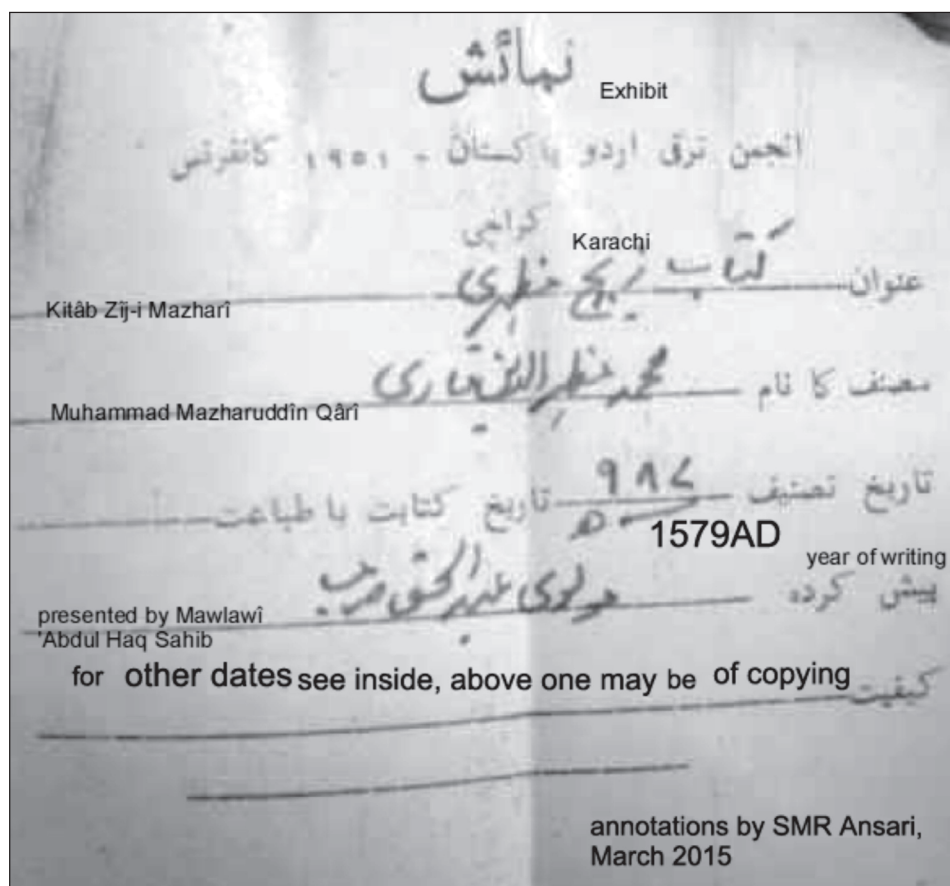 نمائش Exhibit
انجمن ترقی اردو پاکستان - ۱۹۵۱ کانفرنس
کراچی Karachi
عنوان کتاب زیج مظہری
Kitâb Zîj-i Mazharî
مصنف کا نام محمد مظہر الدین قاری
Muhammad Mazharuddîn Qârî
تاریخ تصنیف ۹۸۷ھ تاریخ کتابت یا طباعت
1579AD
year of writing
پیش کردہ مولوی عبدالحق صاحب
presented by Mawlawî
'Abdul Haq Sahib
for other dates see inside, above one may be of copying
کیفیت
annotations by SMR Ansari,
March 2015